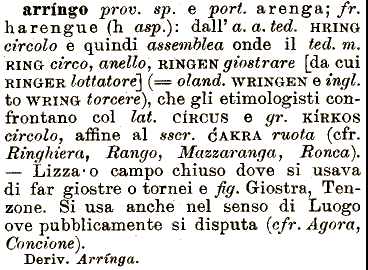 arríngo prov. sp. e port. arenga; fr.
harengue (h asp.): dall' a. a. ted. HRING
circolo e quindi assemblea onde il ted. m.
RING circo, anello, RINGEN giostrare [da cui
RINGER lottatore] (= oland. WRINGEN e ingl.
to WRING torcere), che gli etimologisti con-
frontano col lat. CÍRCUS e gr. KÍRKOS
circolo, affine al sscr. ĆAKRA ruota (cfr.
Ringhiera, Rango, Mazzaranga, Ronca).
— Lizza·o campo chiuso dove si usava
di far giostre o tornei e fig. Giostra, Ten-
zone. Si usa anche nel senso di Luogo
ove pubblicamente si disputa (cfr. Agora,
Concione).
Deriv. Arrínga.